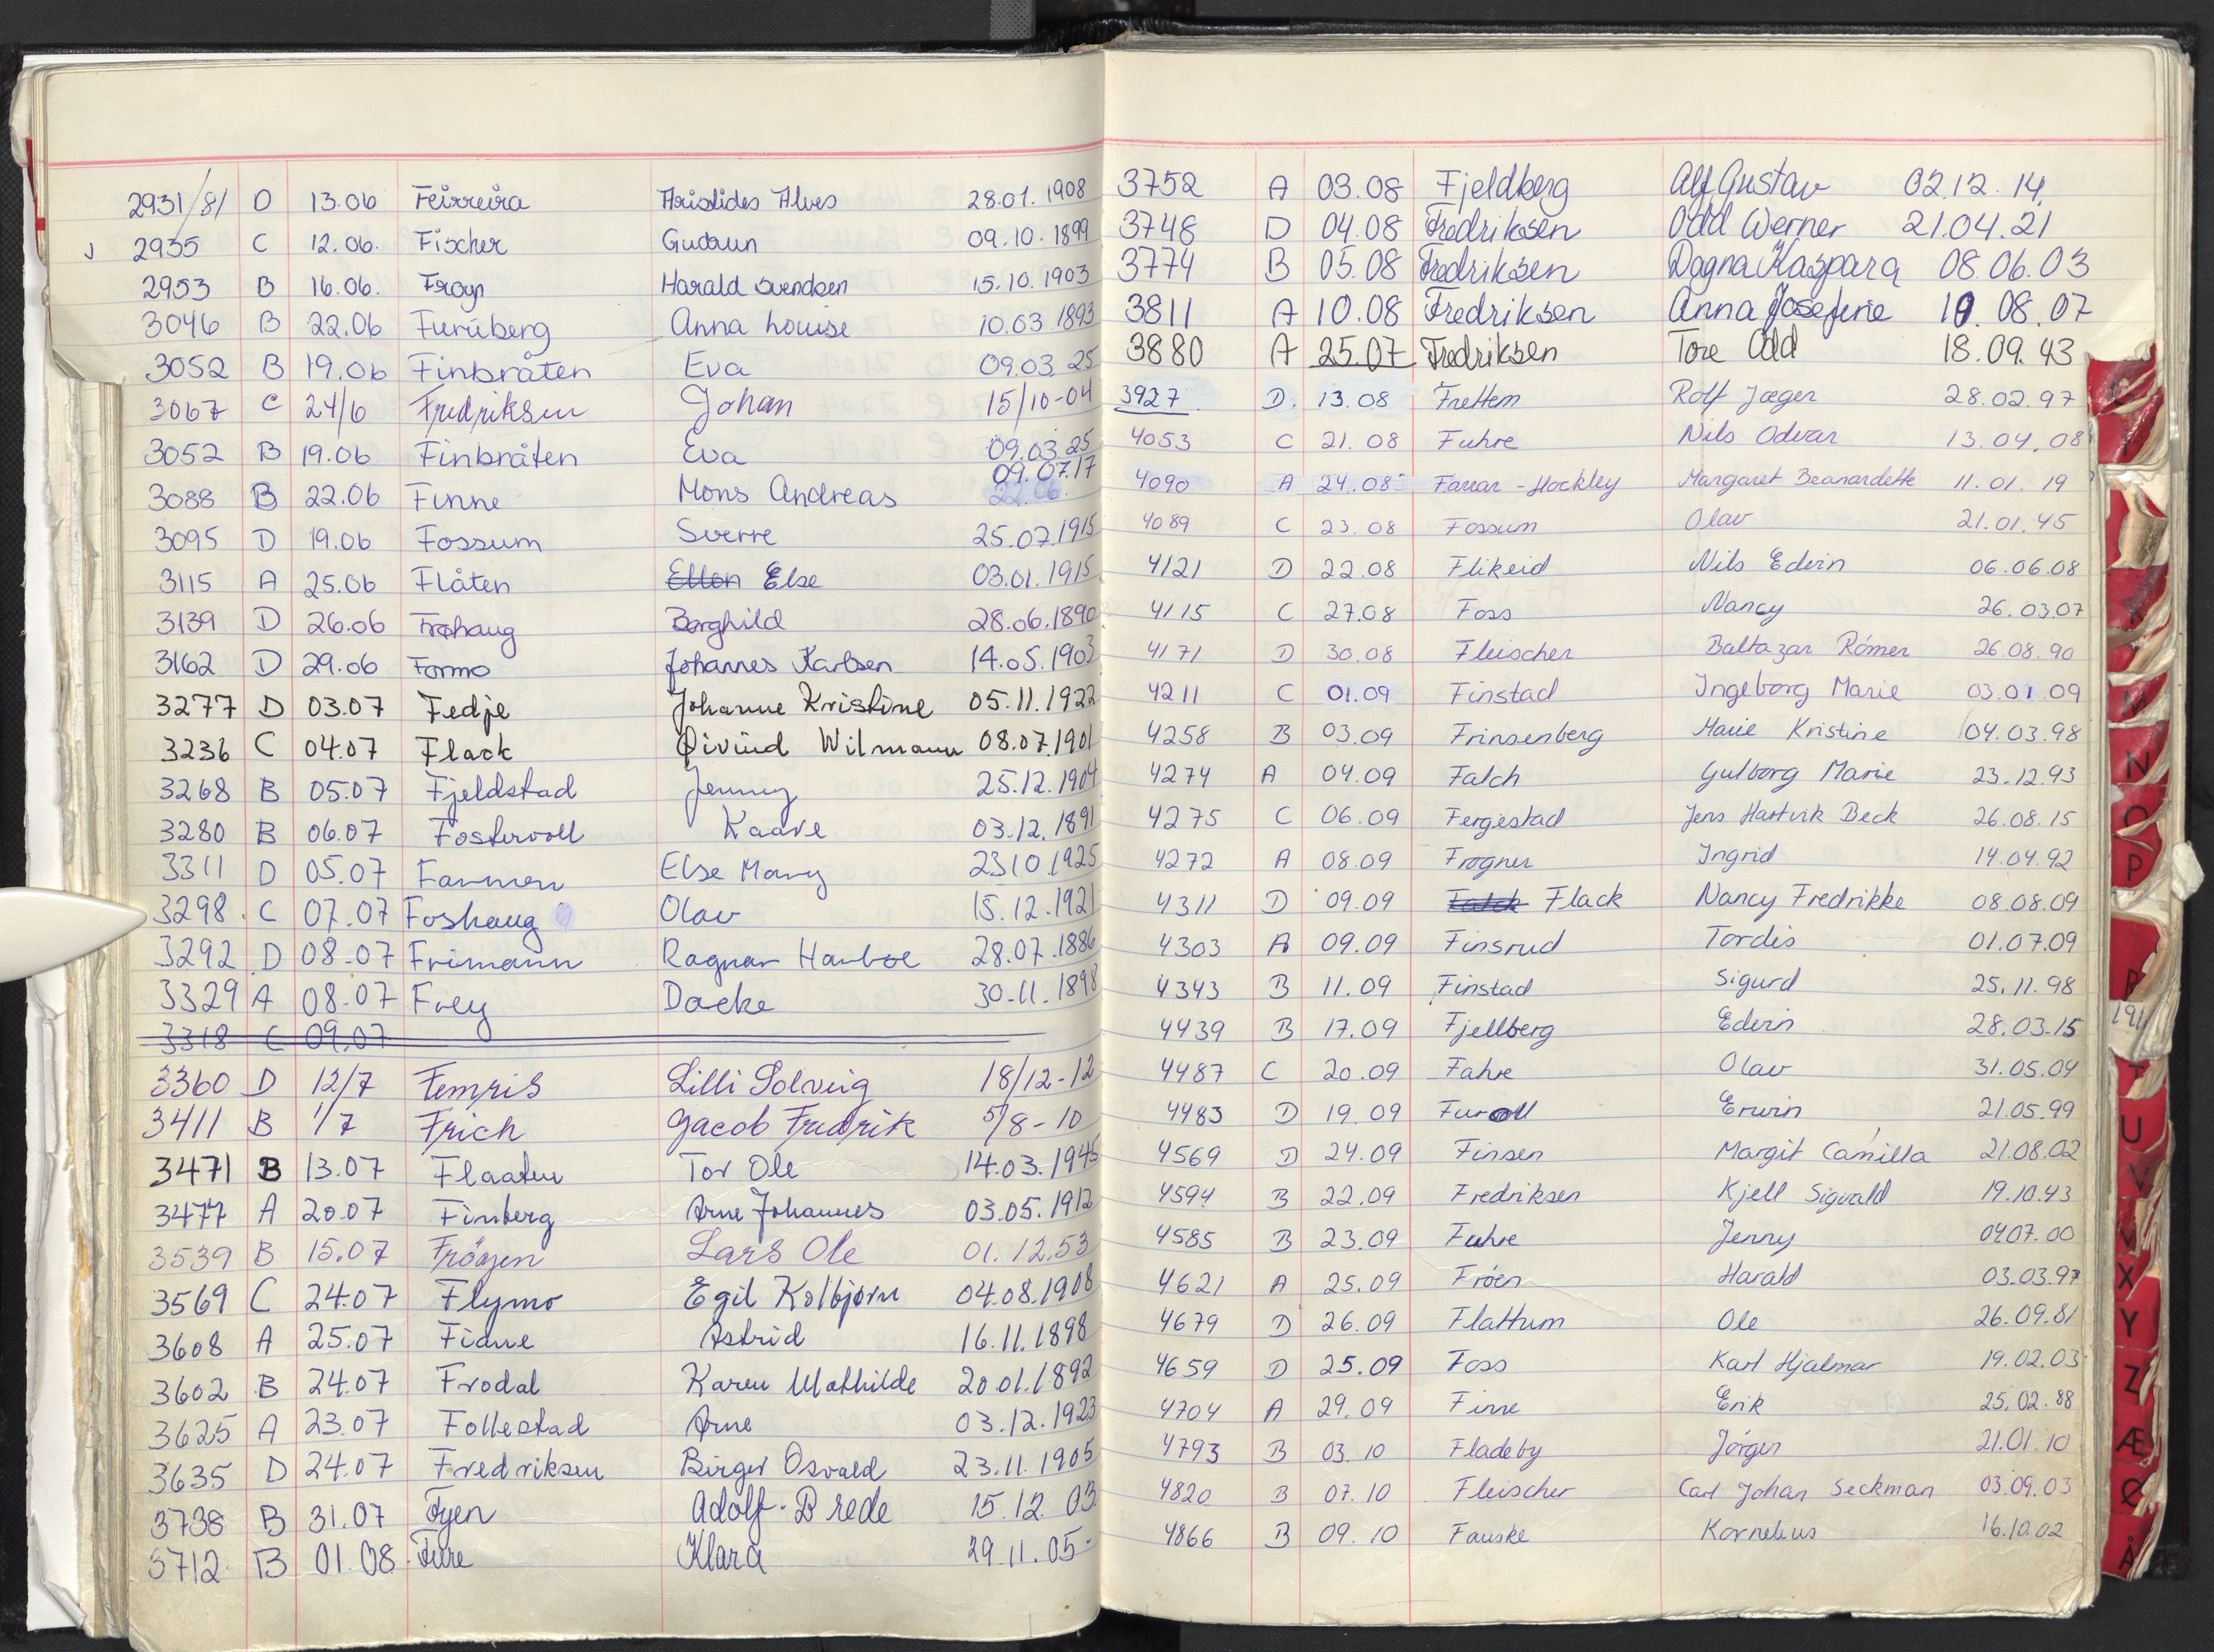 2931/81 D 13.06 Feirreira Aristides Alves 28.01.1908
2935 C 12.06. Fischer Gudrun 09.10.1899
2953 B 16.06. Frøys Harald Svendsen 15.10.1903
3046 B 22.06 Furuberg Anna Louise 10.03.1893
3052 B 19.06 Finbråten Eva 09.03.25
3067 C 24/6 Fredriksen Johan 15/10-04
3052 B 19.06 Finbråten Eva 09.03.25
3088 B 22.06 Finne Mons Andreas 09.07.17
3095 D 19.06 Fossum Sverre 25.07.1915
3115 A 25.06 Flåten Ellen Else 03.01.1915
3139 D 26.06 Frøhaug Borghild 28.06.1890
3162 D 29.06 Formo Johannes Karlsen 14.05.1903
3277 D 03.07 Fedje Johanne Kristine 05.11.1922
3236 C 04.07 Flack Øivind Wilmann 08.07.1901
3268 B 05.07 Fjeldstad Jenny 25.12.1904
3280 B 06.07 Fostervoll Kaare 03.12.1891
3311 D 05.07 Farmen Else Mary 23.10.1925
3298 C 07.07 Foshaug Olav 15.12.1921
3292 D 08-07 Frimann Ragnar Hauboe 28.07.1886
3329 A 08-07 Frey Dacke 30-11.1898
3318 C 09.07
3360 D 12/7 Femris Lilli Solveig 18/12-12
3411 B 1/7 Frich Jacob Fredrik 5/8-10
3471 B 13.07 Flaaten Tor Ole 14.03.1945
3477 A 20.07 Finberg Arne Johannes 03.05.1912
3539 B 15.07 Frøysen Lars Ole 01.12.53
3569 C 24.07 Flymo Egil Kolbjørn 04.08.1908
3608 A 25.07 Fiane Astrid 16.11.1898
3602 B 24.07 Frodal Karen Mathilde 20.01.1892
3625 A 23.07 Follestad Arne 03.12.1923
3635 D 24.07 Fredriksen Birger Osvald 23.11.1905
3738 B 31.07 Fyen Adolf-Brede 15.12.03
3712 B 01.08 Fure Klara 29.11.05
3752 A 03.08 Fjeldberg Alf Gustav 02.12.14
3748 D 04.08 Fredriksen Odd Werner 21.04.21
3774 B 05.08 Fredriksen Dagna Kaspara 08.06.03
3811 A 10.08 Fredriksen Anna Josefine 10.08.07
3880 A 25.07 Fredriksen Tore Odd 18.09.43
3927 D. 13.08 Frettem Rolf Jæger 28.02.97
4053 C 21.08 Fuhre Nils Odvar 13.04.08
4090 A 24.08 Farrar-Hockley Margaret Beanardette 11.01.19
4089 C 23.08 Fossum Olav 21.01.45
4121 D 22.08 Flikeid Nils Edvin 06.06.08
4115 C 27.08 Foss Nancy 26.03.07
4171 D 30.08 Fleischer Baltazar Römer 26.08.90
4211 C 01.09 Finstad Ingeborg Marie 03.01.09
4258 B 03.09 Frinsenberg Marie Kristine 04.03.98
4274 A 04.09 Falch Gulborg Marie 23.12.93
4275 C 06.09 Fergestad Jens Hartvik Beck 26.08.15
4272 A 08.09 Frogner Ingrid 14.04.92
4311 D 09.09 Falch Flack Nancy Fredrikke 08.08.09
4303 A 09.09 Finsrud Tordis 01.07.09
4343 B 11.09 Finstad Sigurd 25.11.98
4439 B 17.09 Fjellberg Edvin 28.03.15
4487 C 20.09 Fahre Olav 31.05.04
4483 D 19.09 Furoll Erwin 21.05.99
4569 D 24.09 Finsen Margit Camilla 21.08.02
4594 B 22.09 Fredriksen Kjell Sigvald 19.10.43
4585 B 23.09 Fuhre Jenny 04.07.00
4621 A 25.09 Frøen Harald 03.03.97
4679 D 26.09 Flattum Ole 26.09.81
4659 D 25.09 Foss Karl Hjalmar 19.02.03
4704 A 29.09 Finne Erik 25.02.88
4793 B 03.10 Fladeby Jørgen 21.01.10
4820 B 07.10 Fleischer Carl Johan Seckman 03.09.03
4866 B 09.10 Fauske Kornelius 16.10.02
M
N
O
P
R
U
V
X
Y
Z
Æ
Ø
Å